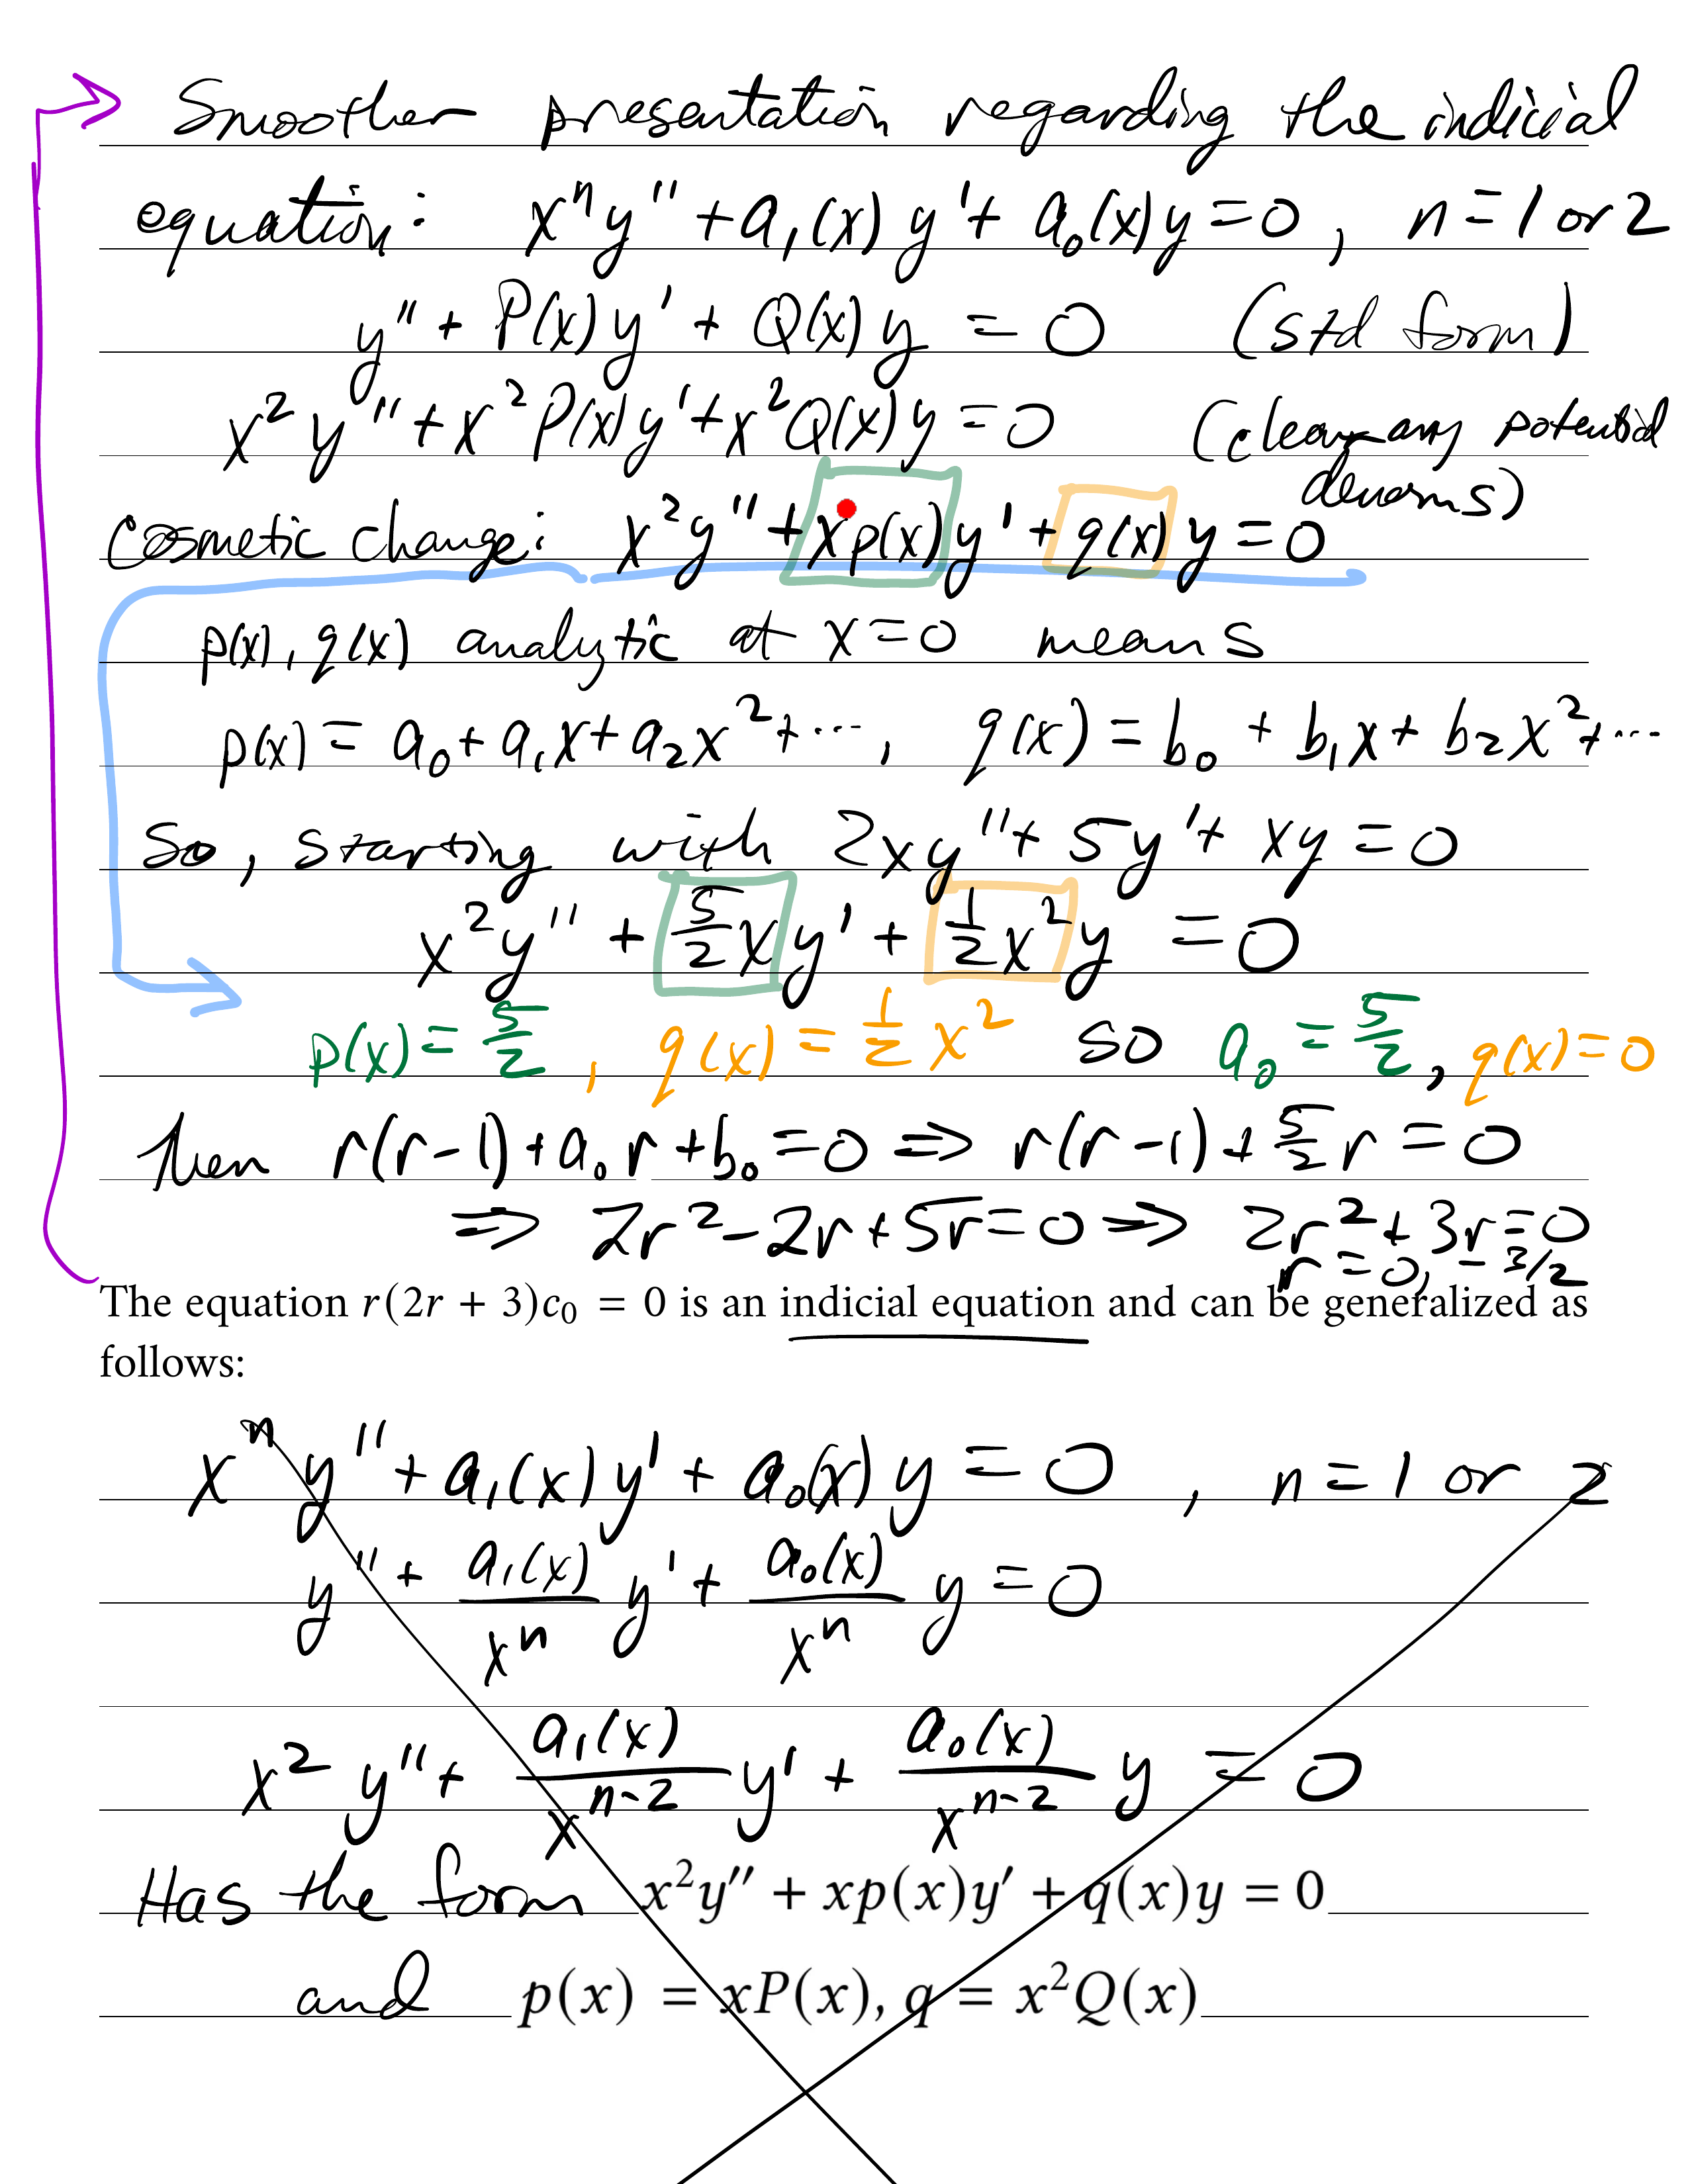 Smoother presentation regarding the indicial
equation: xⁿy″ + a₁(x)y′ + a₀(x)y = 0, n = 1 or 2
y″ + P(x)y′ + Q(x)y = 0 (std form)
x²y″ + x²P(x)y′ + x²Q(x)y = 0 (clear any potential
denoms)
Cosmetic change: x²y″ + xp(x)y′ + q(x)y = 0
p(x), q(x) analytic at x=0 means
p(x) = a₀ + a₁x + a₂x² + ⋯, q(x) = b₀ + b₁x + b₂x² + ⋯
So, starting with 2xy″ + 5y′ + xy = 0
x²y″ + 5/2 xy′ + 1/2 x²y = 0
p(x) = 5/2, q(x) = 1/2 x² so a₀ = 5/2, q(x) = 0
Then r(r-1) + a₀r + b₀ = 0 ⇒ r(r-1) + 5/2 r = 0
⇒ 2r² - 2r + 5r = 0 ⇒ 2r² + 3r = 0
r = 0, -3/2
The equation r(2r + 3)c₀ = 0 is an indicial equation and can be generalized as
follows:
xⁿy″ + a₁(x)y′ + a₀(x)y = 0, n = 1 or 2
y″ + a₁(x)/xⁿ y′ + a₀(x)/xⁿ y = 0
x²y″ + a₁(x)/xⁿ⁻² y′ + a₀(x)/xⁿ⁻² y = 0
Has the form x²y″ + xp(x)y′ + q(x)y = 0
and p(x) = xP(x), q = x²Q(x)